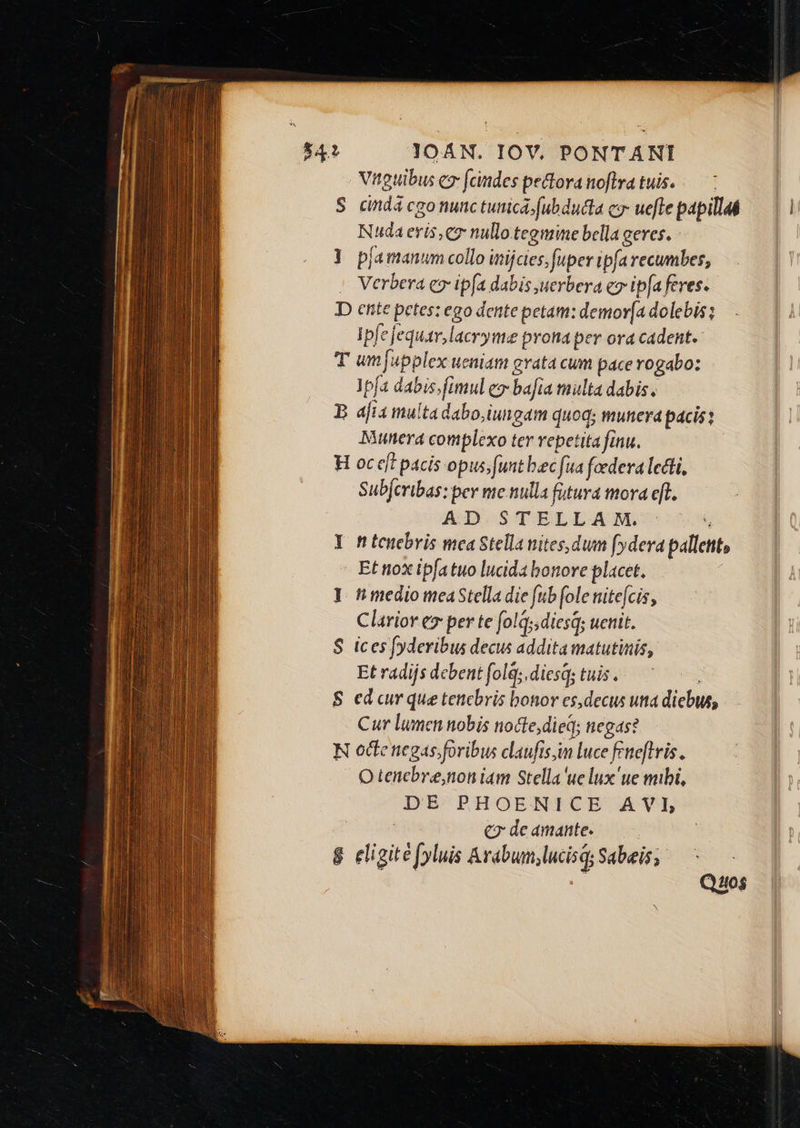 542 IOAN. IOV. PONTANI
Vnguibus & ſcindes pectora noſtra tuis.
S cindã ego nunc tunicã, ſubducta & ueſte papillas
Nuda eris, & nullo tegmine bella geres.
I pſa manum collo inijcies, ſuper ipſa recumbes,
Verbera & ipſa dabis, uerbera & ipſa feres.
D ente petes: ego dente petam: demorſa dolebis:
Ipſe ſequar, lacrymæ prona per ora cadent.
T um ſupplex ueniam grata cum pace rogabo:
Ipſa dabis, ſimul & baſia multa dabis.
B aſia multa dabo, iungam quoq; munera pacis:
Munera complexo ter repetita ſinu.
H oc eſt pacis opus, ſunt hæc ſua fœdera lecti,
Subſcribas: per me nulla futura mora eſt.
AD STELLAM.
I n tenebris mea Stella nites, dum ſydera pallent,
Et nox ipſa tuo lucida honore placet.
I n medio mea Stella die ſub ſole niteſcis,
Clarior & per te ſolq;, diesq; uenit.
S ic es ſyderibus decus addita matutinis,
Et radijs debent ſolq;, diesq; tuis.
S ed cur quæ tenebris honor es, decus una diebus,
Cur lumen nobis nocte, dieq; negas?
N octe negas, foribus clauſis, in luce feneſtris.
O tenebræ, non iam Stella 'ue lux 'ue mihi,
DE PHOENICE AVI,
& de amante.
S eligite ſyluis Arabum, lucisq; Sabæis,
Quos